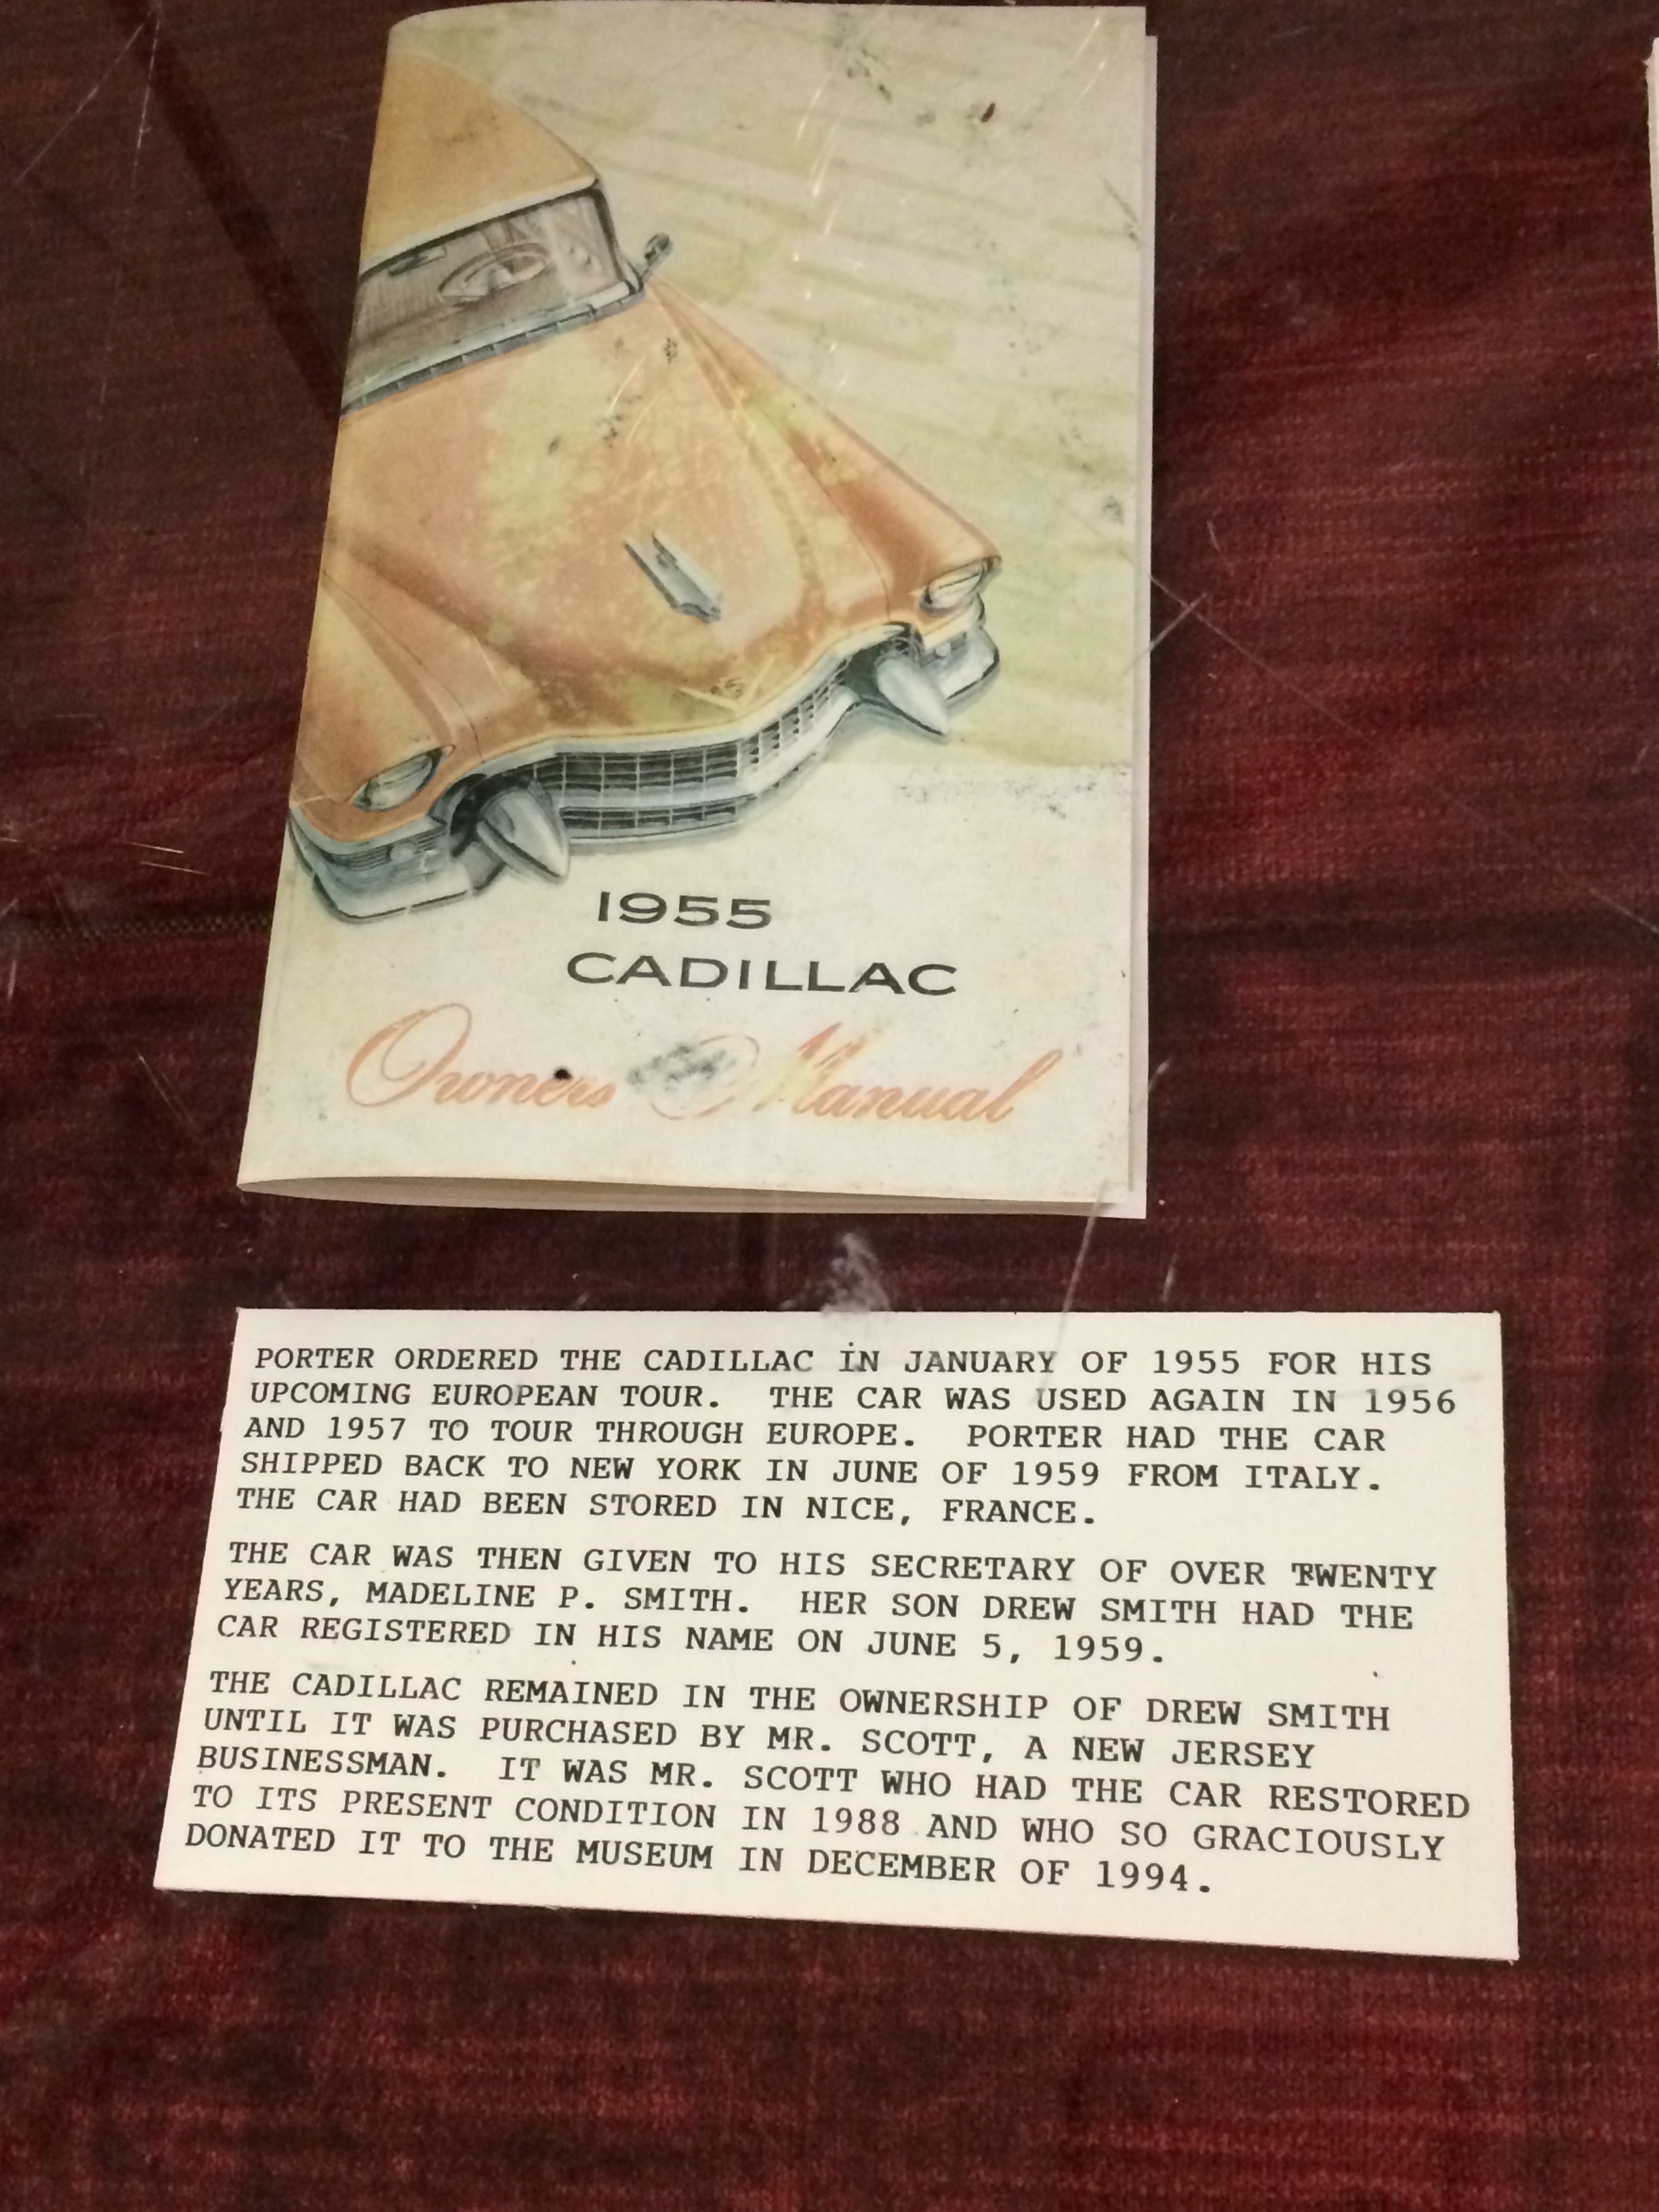 1955
CADILLAC
Owners Manual
PORTER ORDERED THE CADILLAC iN JANUARY OF 1955 FOR HIS
UPCOMING EUROPEAN TOUR. THE CAR WAS USED AGAIN IN 1956
AND 1957 TO TOUR THROUGH EUROPE. PORTER HAD THE CAR
SHIPPED BACK TO NEW YORK IN JUNE OF 1959 FROM ITALY.
THE CAR HAD BEEN STORED IN NICE, FRANCE.
THE CAR WAS THEN GIVEN TO HIS SECRETARY OF OVER TWENTY
YEARS, MADELINE P. SMITH. HER SON DREW SMITH HAD THE
CAR REGISTERED IN HIS NAME ON JUNE 5, 1959.
THE CADILLAC REMAINED IN THE OWNERSHIP OF DREW SMITH
UNTIL IT WAS PURCHASED BY MR. SCOTT, A NEW JERSEY
BUSINESSMAN. IT WAS MR. SCOTT WHO HAD THE CAR RESTORED
TO ITS PRESENT CONDITION IN 1988 AND WHO SO GRACIOUSLY
DONATED IT TO THE MUSEUM IN DECEMBER OF 1994.